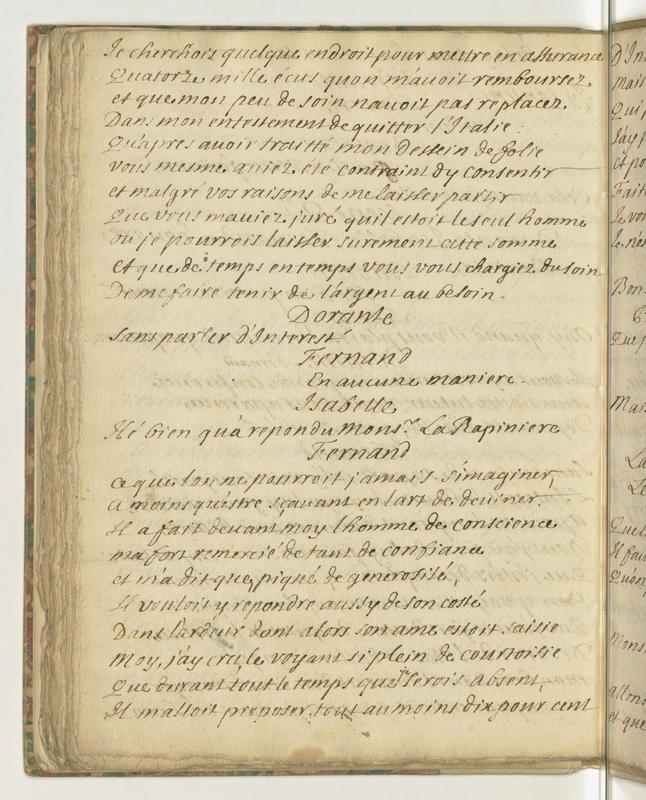 Je cherchois quelque endroit pour mettre en assurance
Quatorze mille écus quon m'auoit remboursez
et que mon peu de soin nauoit pas replacez
Dans mon entestement de quitter l'Italie :
Qu'apres auoir traitté mon dessein de folie
vous mesme auiez été contraint dy consentir
et malgré vos raisons de me laisser partir
Que vous mauiez juré quil estoit le seul homme
ou je pourrois laisser surement cette somme
et que de temps en temps vous vous chargiez du soin
De me faire tenir de largent au besoin.
Dorante
sans parler d'Interest.
Fernand
En aucune maniere
Isabelle
Hé bien qu'a repondu Monsr. La Rapiniere
Fernand
ce que lon ne pourroit jamais s'imaginer,
a moins qu'estre sçauant en lart de deuiner.
Il a fait deuant moy lhomme de conscience
ma fort remercié de tant de confiance
et m'a dit que, piqué de generosité,
Il vouloit y repondre aussy de son costé
Dans l'ardeur dont alors son ame estoit saisie
Moy, j'ay cru, le voyant si plein de courtoisie
Que durant tout le temps que je serois absent,
Il m'alloit proposer tout au moins dix pour cent